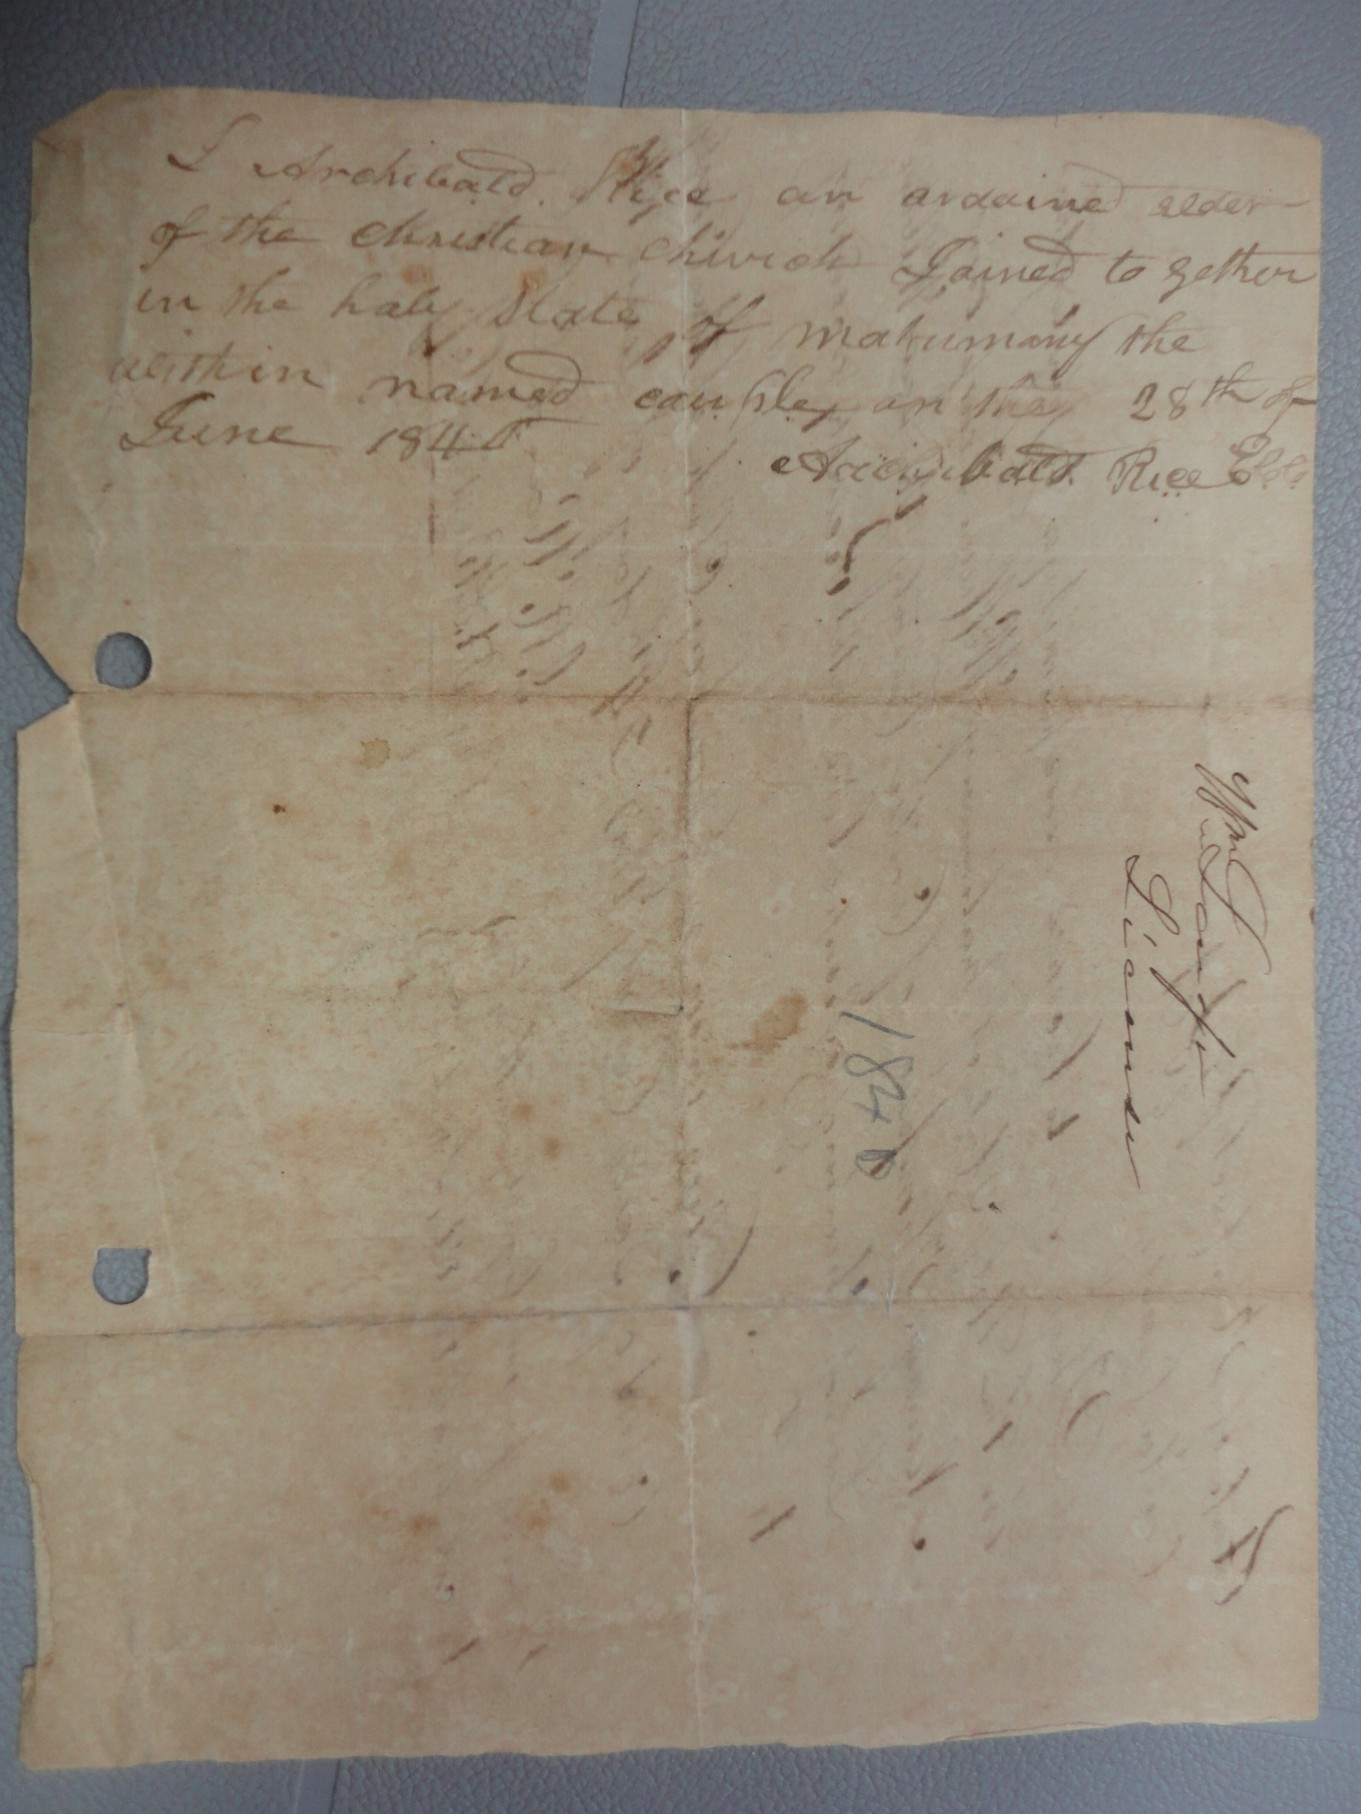 I Archibald Rice an ardained elder
of the christian church Joined to gether
in the haly State of matrimany the
within named cauple, an the 28th of
June 1840
Archibald Rice
Wm
License
1840